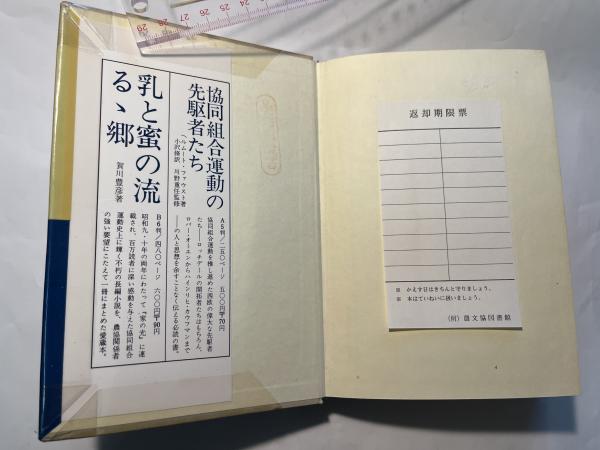 協同組合運動の
先駆者たち
ヘルムート・ファウスト著
小沢修訳 川野重任監修
A5判/二五〇ページ 五〇〇円〒70円
協同組合運動を推し進めた西欧の偉大な先駆者
たち——ロッチデールの開拓者たちはもちろん、
ロバー・オーエンからハインリヒ・カウフマンまで
——の人と思想を余すことなく伝える必読の書。
乳と蜜の流
るゝ郷
賀川豊彦著
B6判/四八〇ページ 六〇〇円〒90円
昭和九・十年の両年にわたって『家の光』に連
載され、百万読者に深い感動を与えた協同組合
運動史上に輝く不朽の長編小説を、農協関係者
の強い要望にこたえて一冊にまとめた愛蔵本。
返却期限票
かえす日はきちんとまもりましょう。
本はていねいに扱いましょう。
(財)農文協図書館
29 28 27 26 25 24 23 22 21 20 19 18